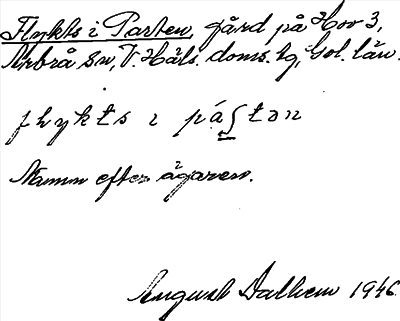 Flykts i Parten, gård på Hov 3,
Arbrå sn, V. Häls. doms. hg, Gvl. län.
flykts i páʃtən
Namn efter ägaren.
August Dalhem 1946.